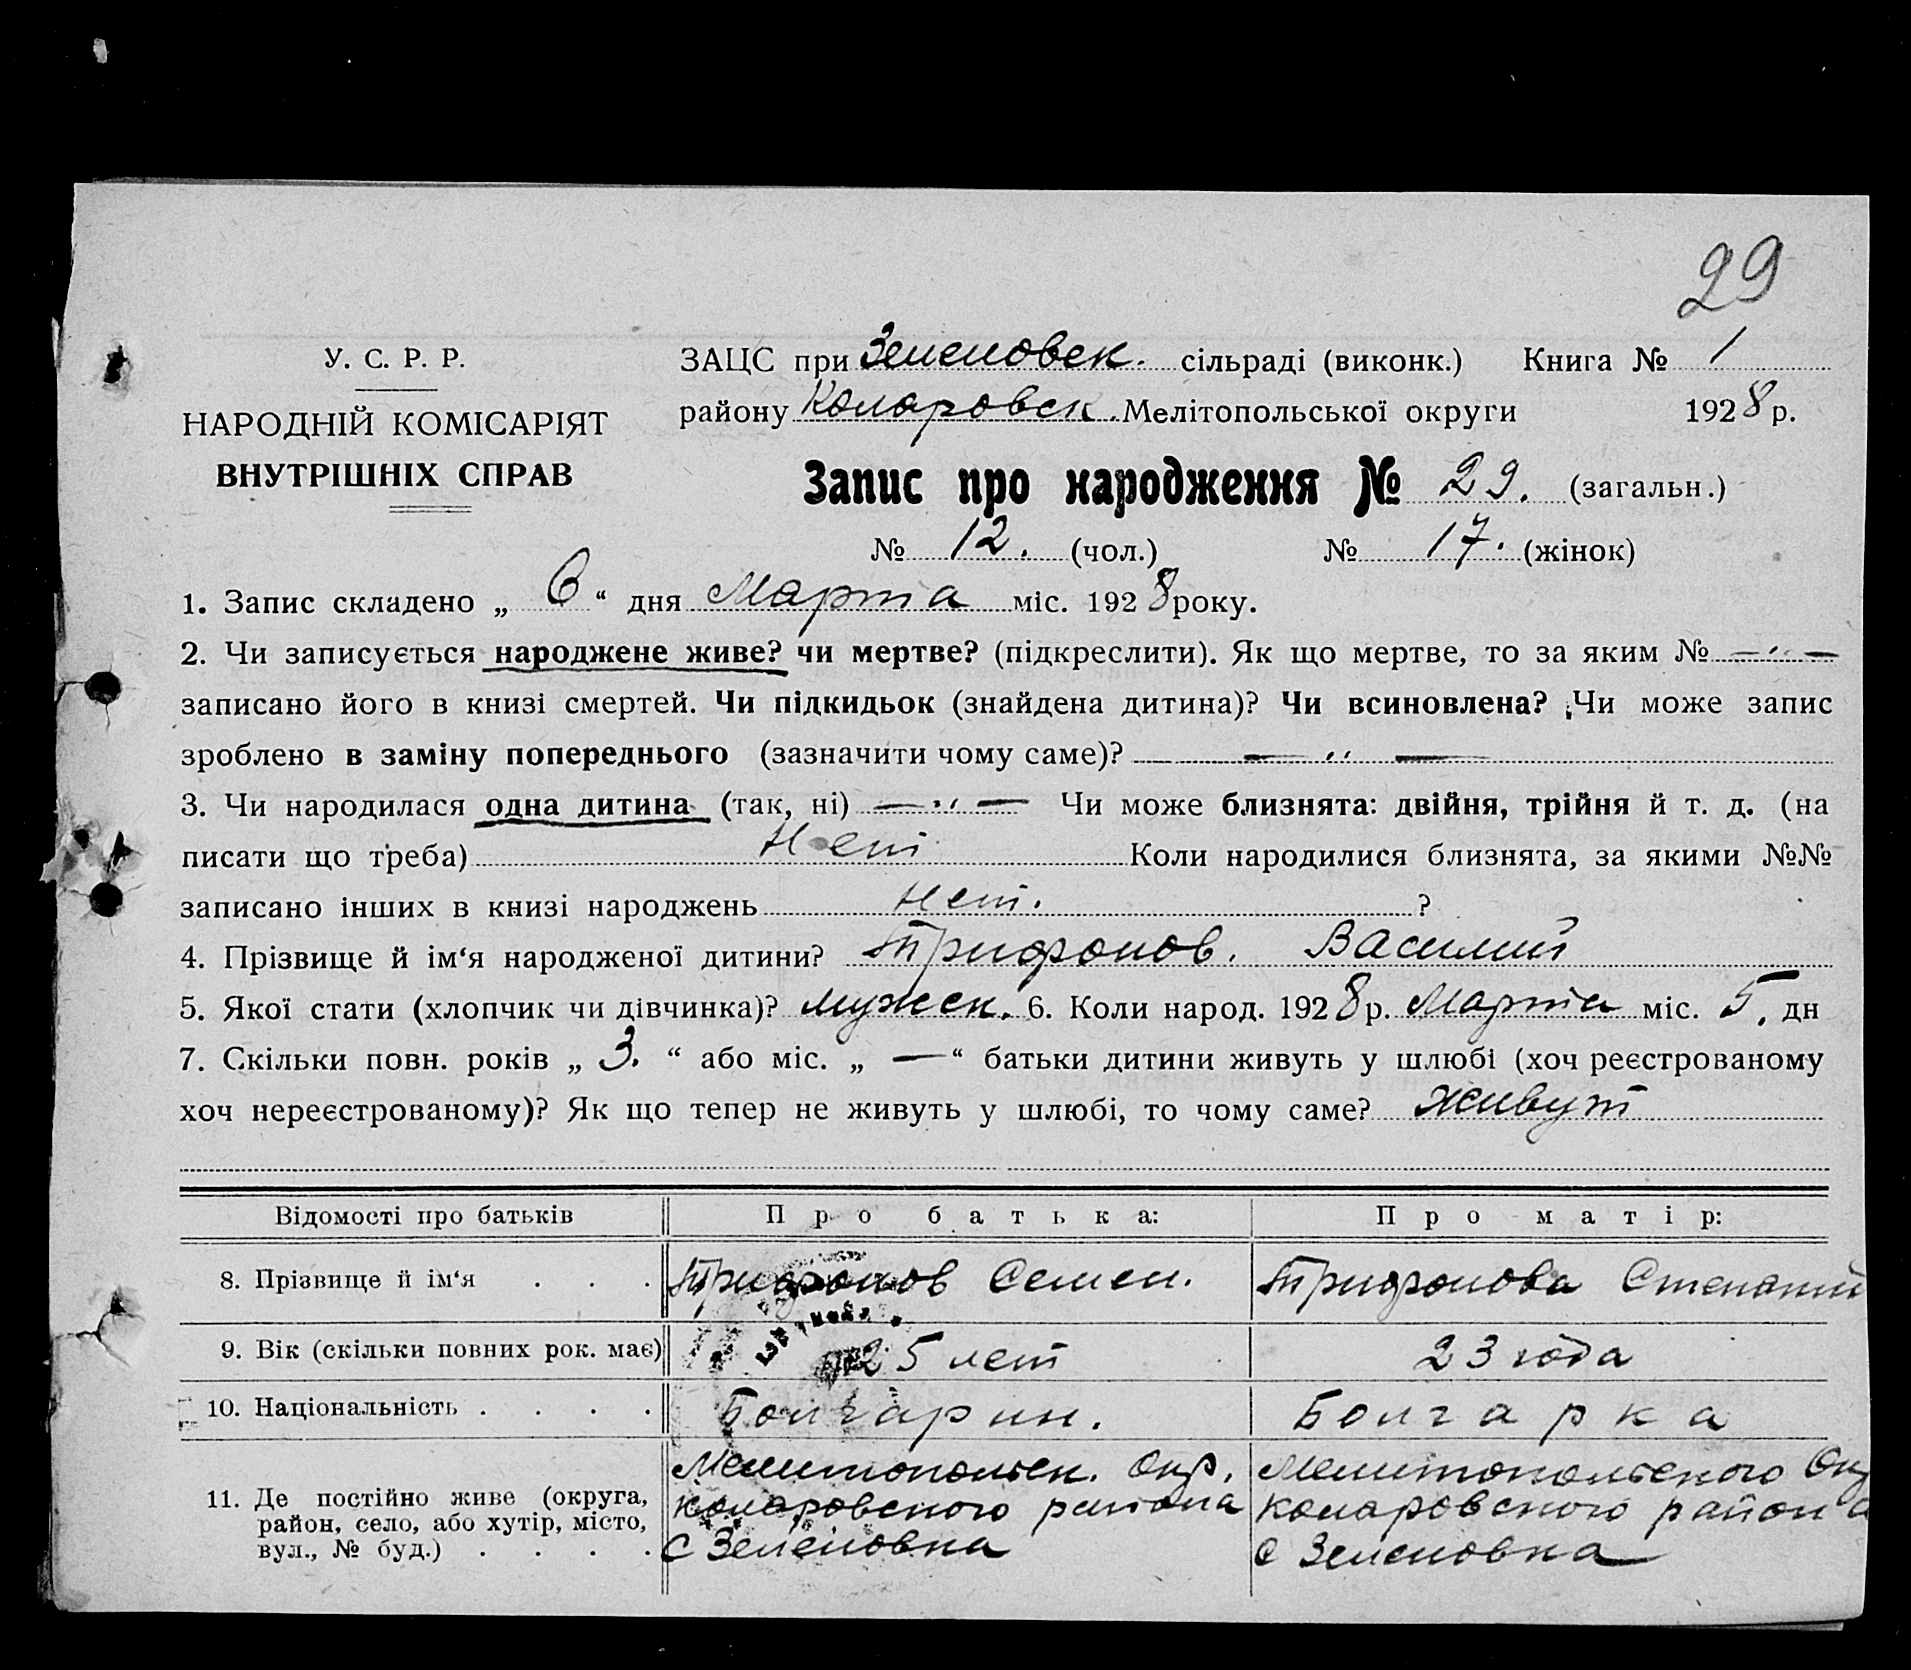 29
У. С. Р. Р.
НАРОДНІЙ КОМІСАРІЯТ
ВНУТРІШНІХ СПРАВ
ЗАЦС при Зеленовск. сільраді (виконк.) Книга № 1
району Коларовск. Мелітопольської округи 1928 р.
Запис про народження № 29. (загальн.)
№ 12. (чол.) № 17. (жінок)
1. Запис складено „ 6 “ дня Марта міс. 1928 року.
2. Чи записується народжене живе? чи мертве? (підкреслити). Як що мертве, то за яким № — „ —
записано його в книзі смертей. Чи підкидьок (знайдена дитина)? Чи всиновлена? Чи може запис
зроблено в заміну попереднього (зазначити чому саме)? — „ —
3. Чи народилася одна дитина (так, ні) — „ — Чи може близнята: двійня, трійня й т. д. (на
писати що треба) Нет Коли народилися близнята, за якими №№
записано інших в книзі народжень нет. ?
4. Прізвище й ім‘я народженої дитини? Трифонов. Василий
5. Якої стати (хлопчик чи дівчинка)? мужск. 6. Коли народ. 1928 р. Марта міс. 5. дн
7. Скільки повн. років „ 3. “ або міс. „ — “ батьки дитини живуть у шлюбі (хоч реєстрованому
хоч нереєстрованому)? Як що тепер не живуть у шлюбі, то чому саме? живут
Відомості про батьків Про батька: Про матір:
8. Прізвище й ім‘я . . . Трифонов Семен. Трифонова Степаний
9. Вік (скільки повних рок. має) 25 лет 23 года
10. Національність . . . . Болгарин. Болгарка
11. Де постійно живе (округа,
район, село, або хутір, місто,
вул., № буд.) . . . .
Мелитопольск. Окр.
коларовского района
с Зеленовка
Мелитопольского Окр
коларовского района
с Зеленовка